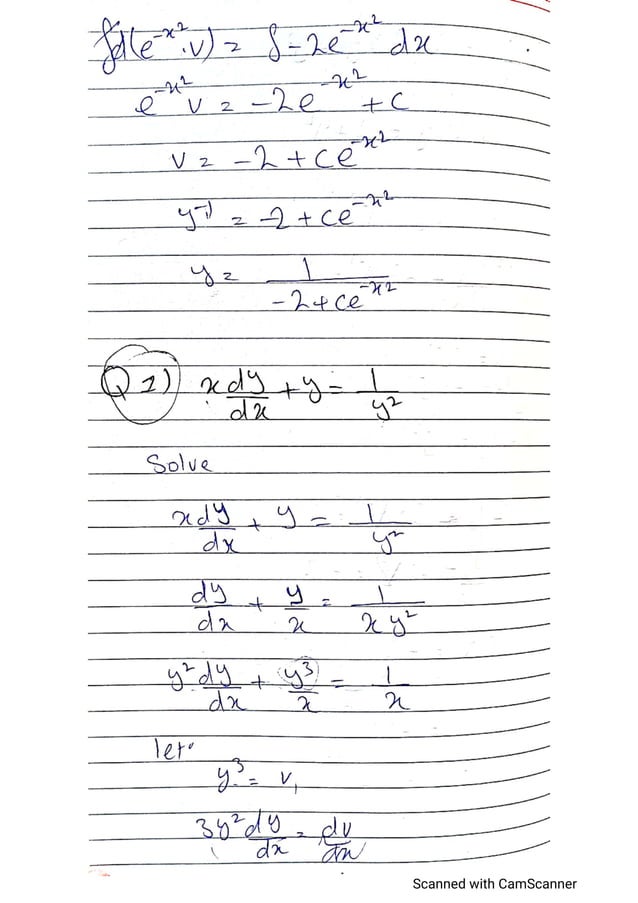 ∫d(e^-x² . v) = ∫-2e^-x² dx
e^-x² v = -2e^-x² + c
v = -2 + ce^-x²
y^-1 = -2 + ce^-x²
y = 1/(-2 + ce^-x²)
Q 1) x dy/dx + y = 1/y²
Solve
x dy/dx + y = 1/y²
dy/dx + y/x = 1/(x y²)
y² dy/dx + y³/x = 1/x
let
y³ = v,
3y² dy/dx = dv/dx
Scanned with CamScanner